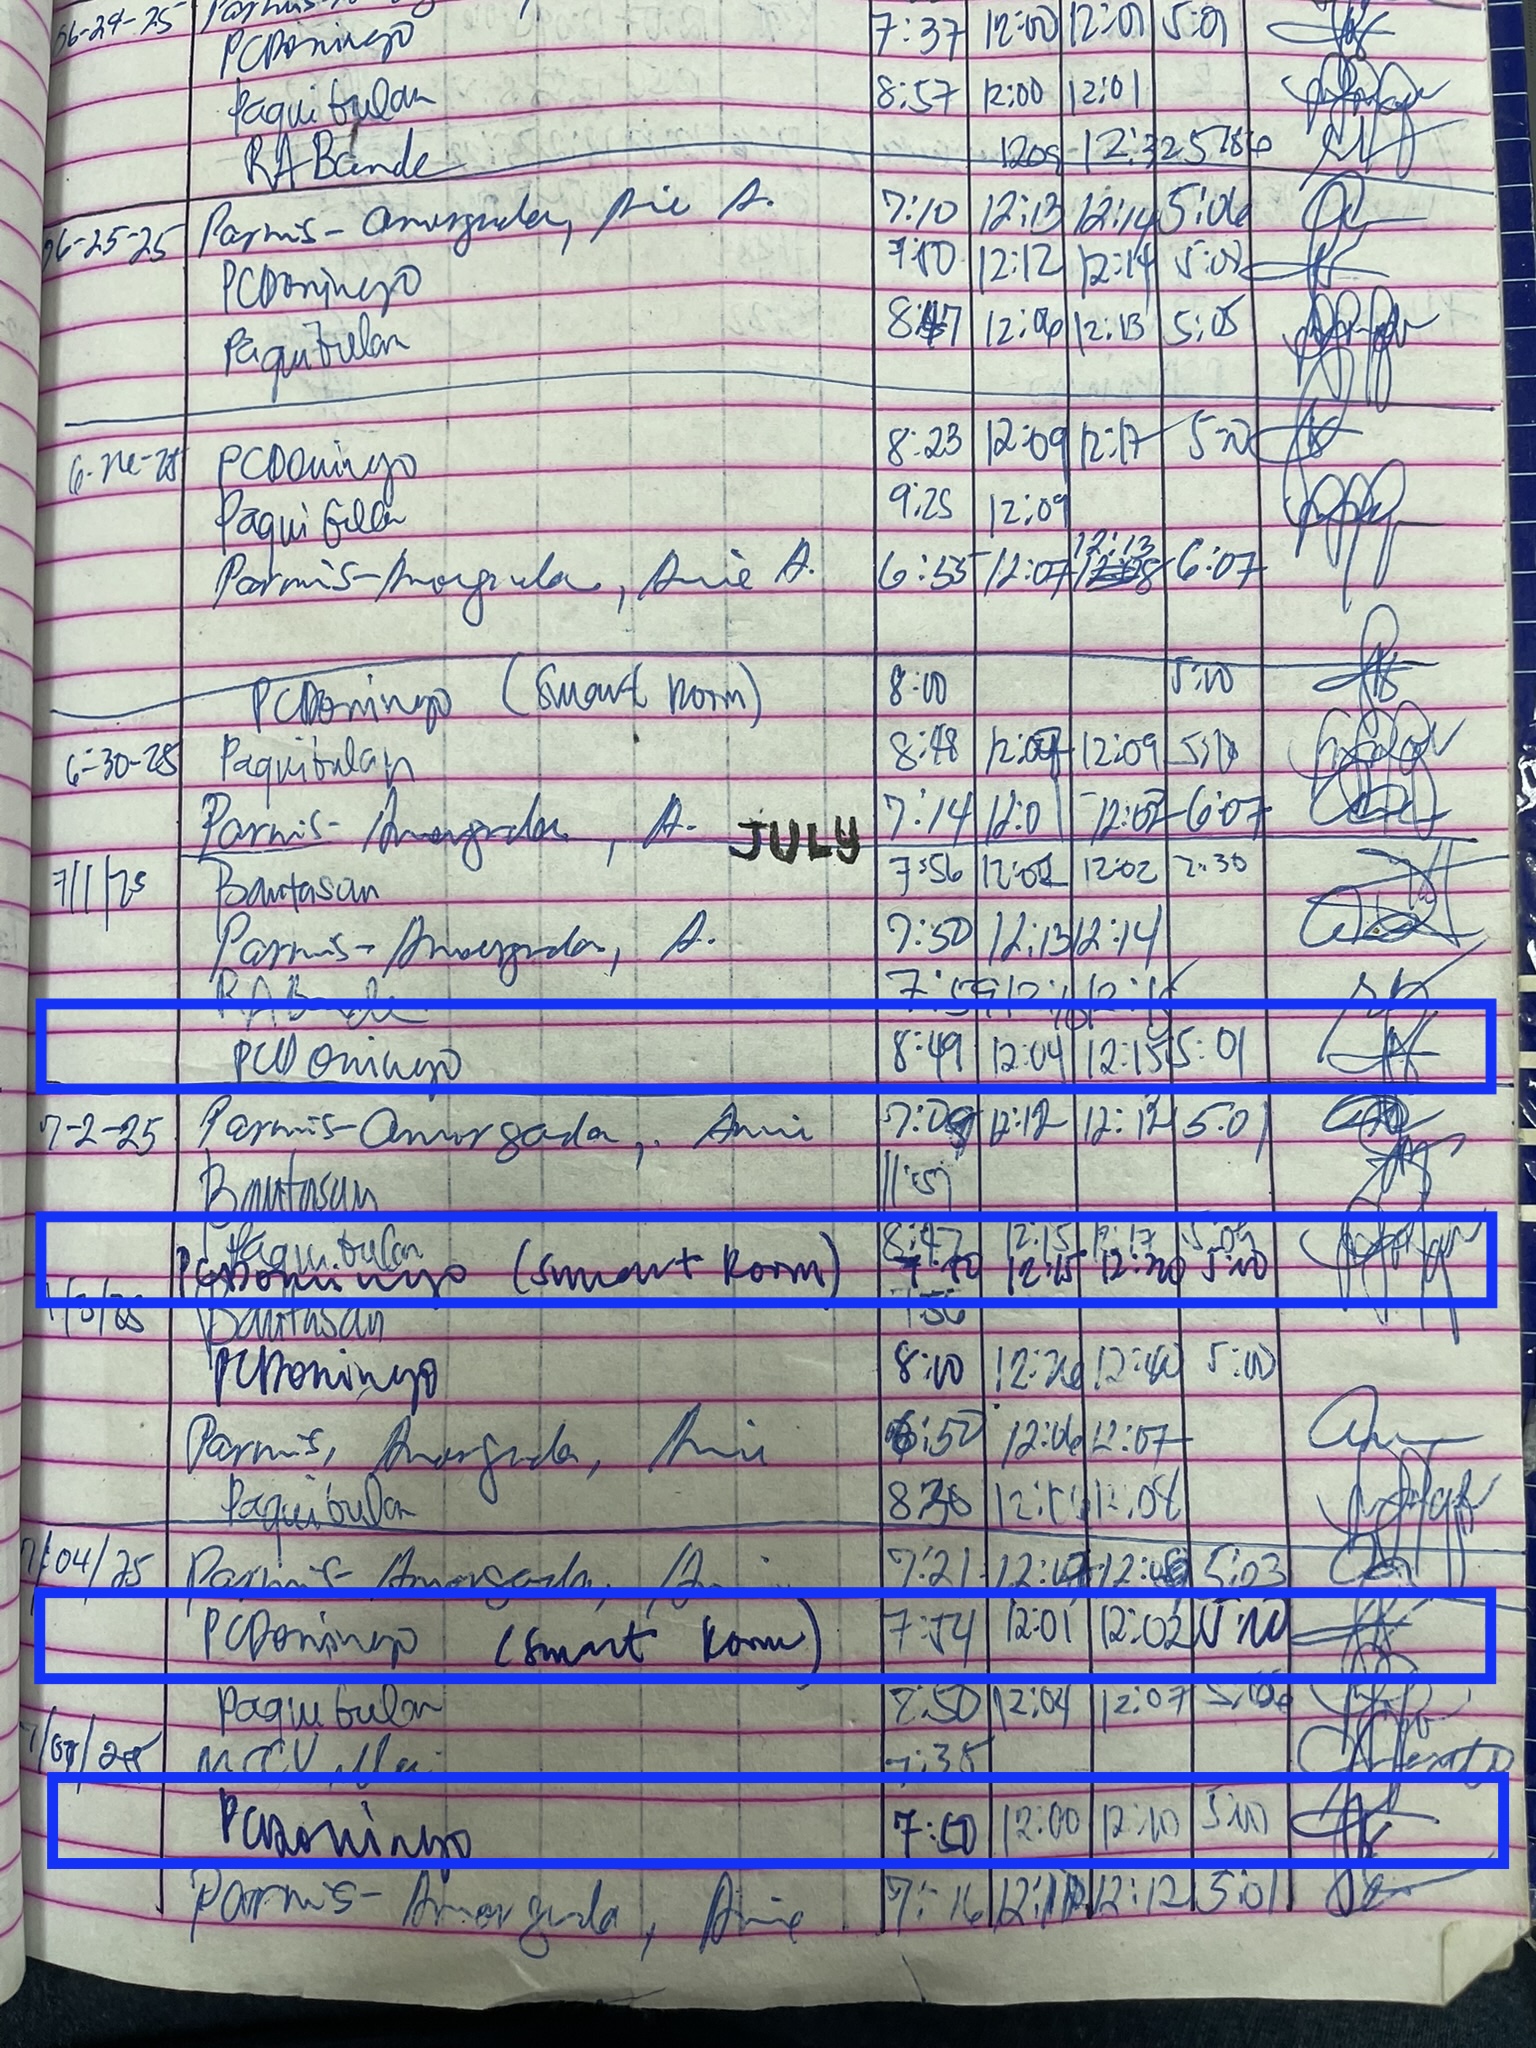 06-24-25
PCDomingo 7:37 12:00 12:01 5:01
Paquibulan 8:57 12:00 12:01
RABande 1209 12:32
06-25-25 Parmis-Amorgada, Arie A. 7:10 12:13 12:14 5:06
PCDomingo 7:50 12:12 12:14 5:07
Paquibulan 8:47 12:06 12:13 5:05
PCDomingo 8:23 12:09 12:17 5:10
Paquibulan 9:25 12:09
Parmis-Amorgada, Arie A. 6:55 12:07 12:13 6:07
PCDomingo (Smart Room) 8:00 5:10
6-30-25 Paquibulan 8:48 12:09 5:10
Parmis-Amorgada, A. 7:14 12:01 12:02 6:07
JULY
7/1/25 Bantasan 7:56 12:02 12:02 2:30
Parmis-Amorgada, A. 7:50 12:13 12:14
RABande 7:59
PCDomingo 8:49 12:04 12:15 5:01
7-2-25 Parmis-Amorgada, Arie 12:12 12:12 5:01
Bantasan
Paquibulan 8:47 12:15 12:17 5:05
PCDomingo (Smart Room) 12:15 12:20 5:10
Bantasan 7:56
PCDomingo 8:10 12:40 5:00
Parmis, Amorgada, Arie 6:50 12:06 12:07
Paquibulan 12:08
7/04/25 Parmis-Amorgada, 7:21 5:03
PCDomingo (Smart Room) 7:54 12:01 12:02 5:10
Paquibulan 7:50 12:04 12:07
7:35
PCDomingo 7:50 12:00 12:10 5:10
Parmis-Amorgada, Arie 7:16 12:12 5:01